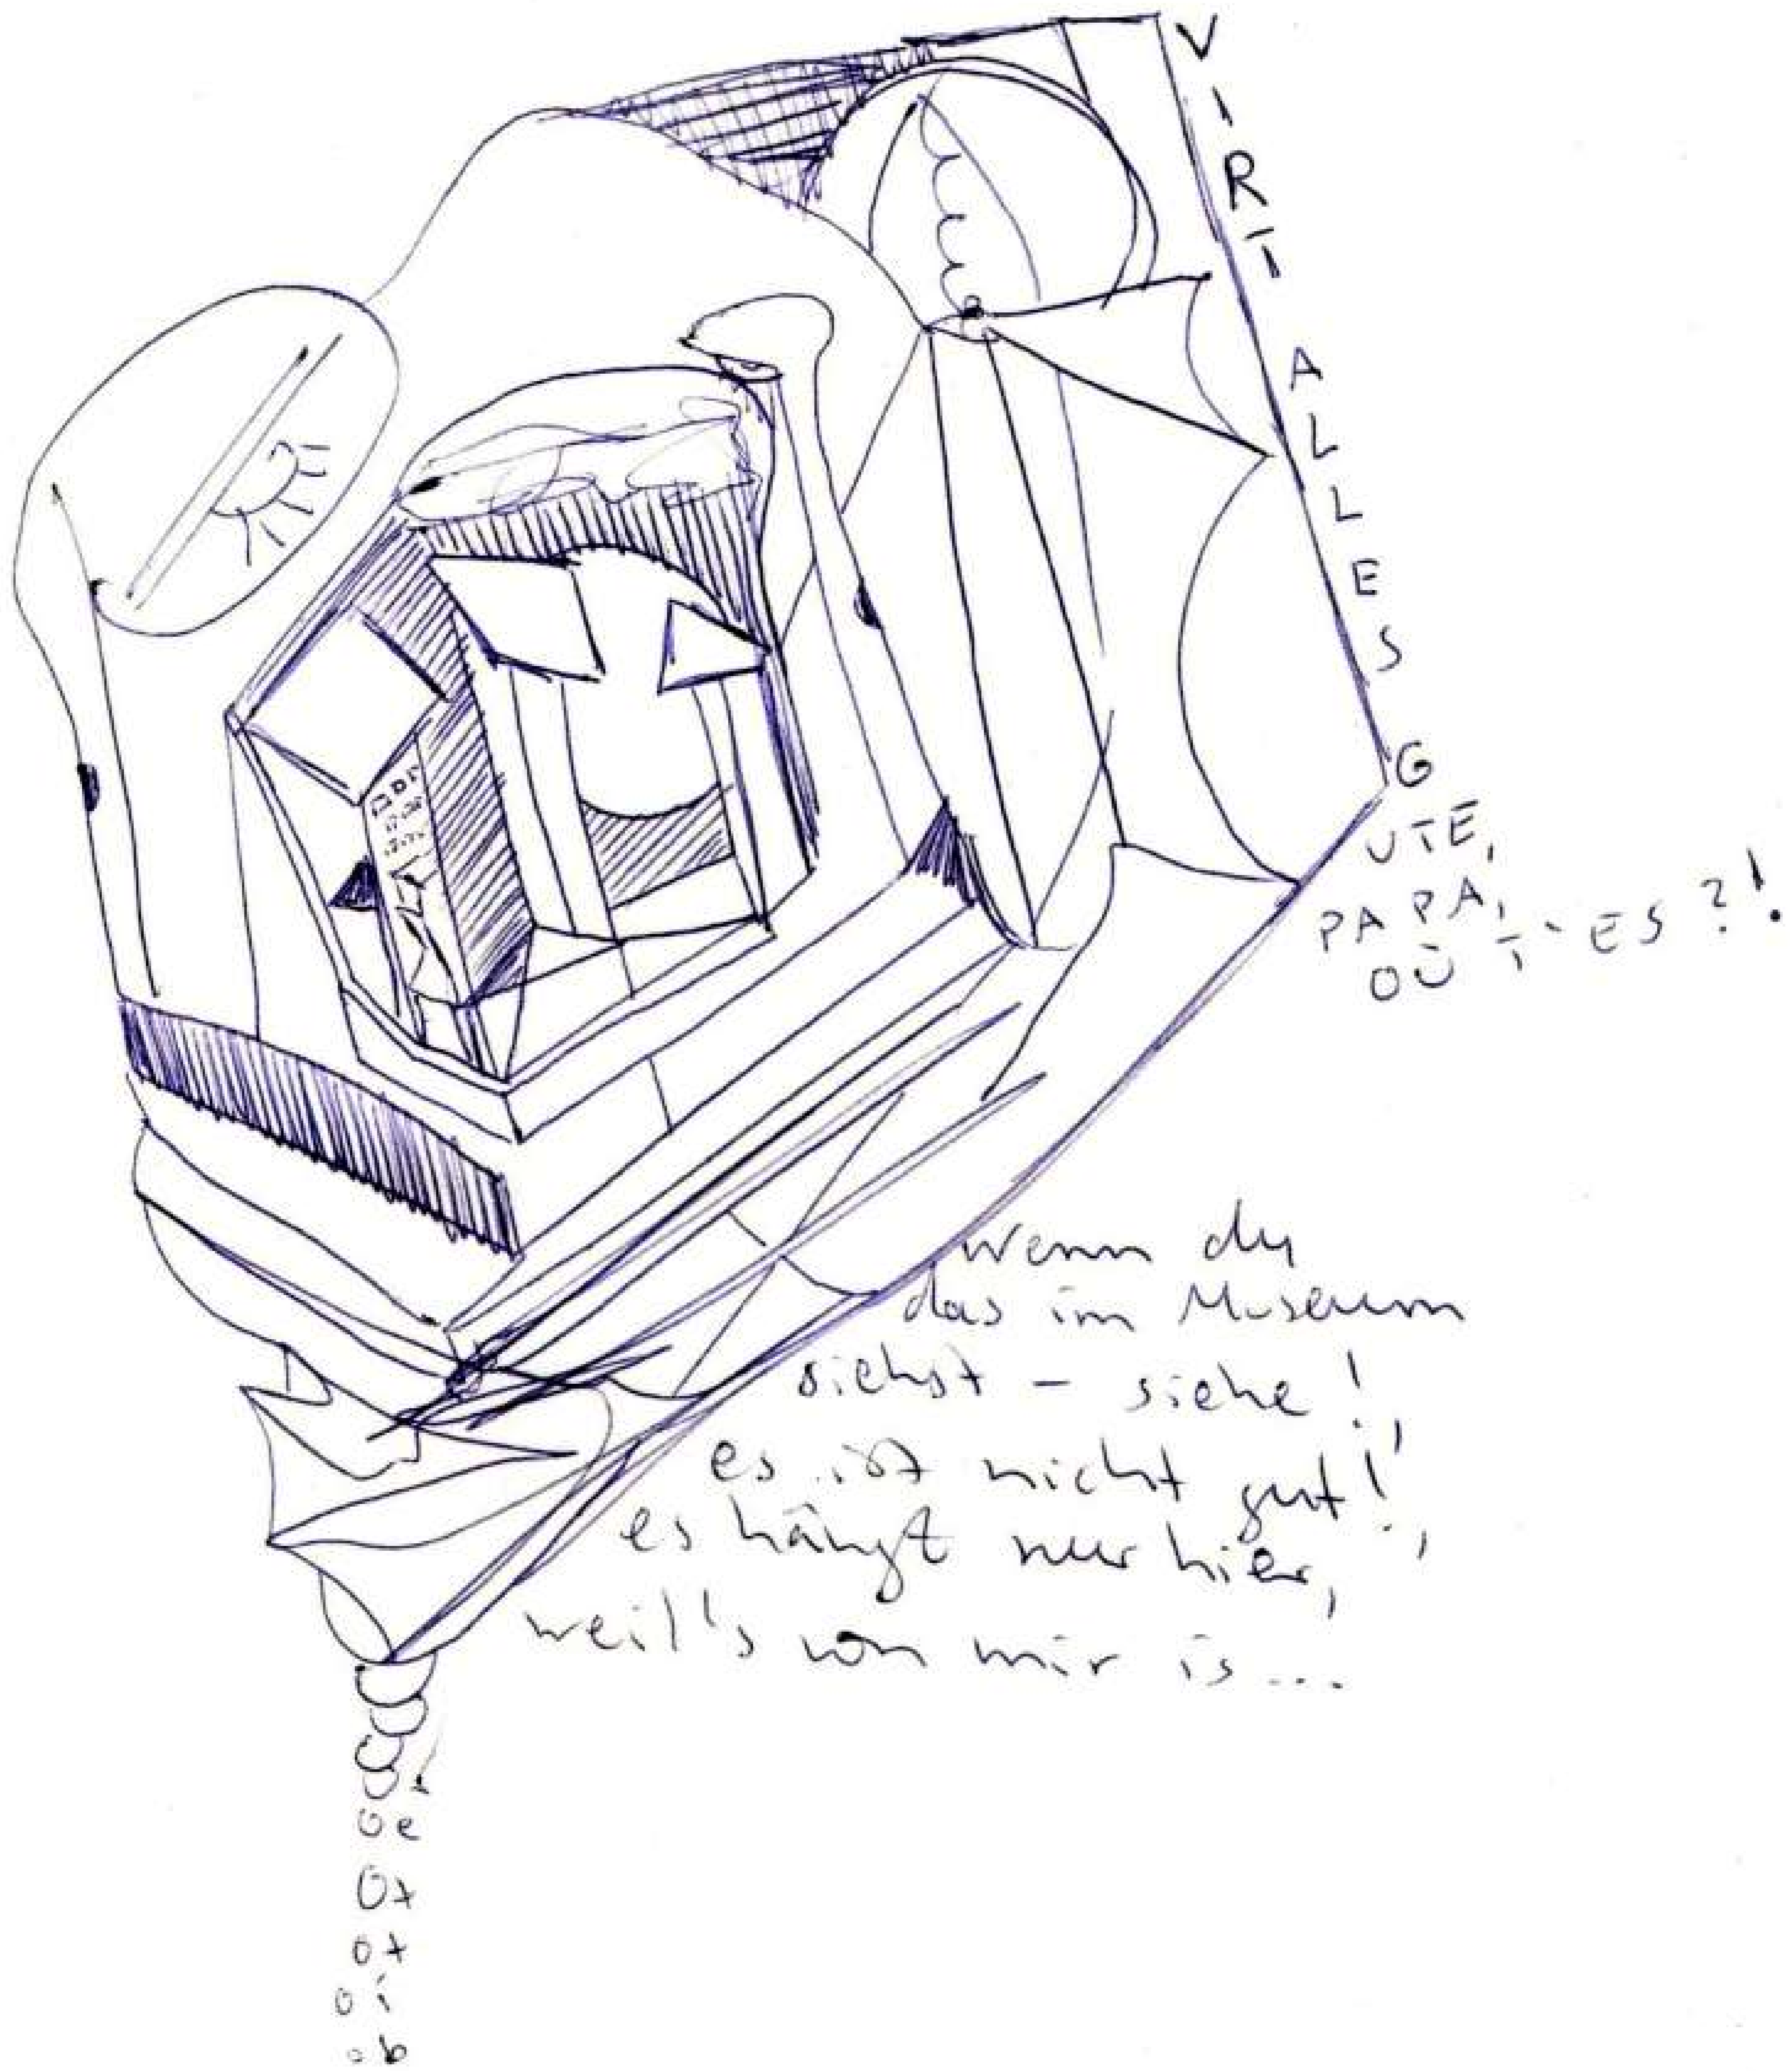 VIRI ALLES G
UTE,
PAPA,
OÙ T'ES?!
wenn du
das im Museum
siehst – siehe!
es ist nicht gut!
es hängt nur hier,
weil's von mir is...
bitte!